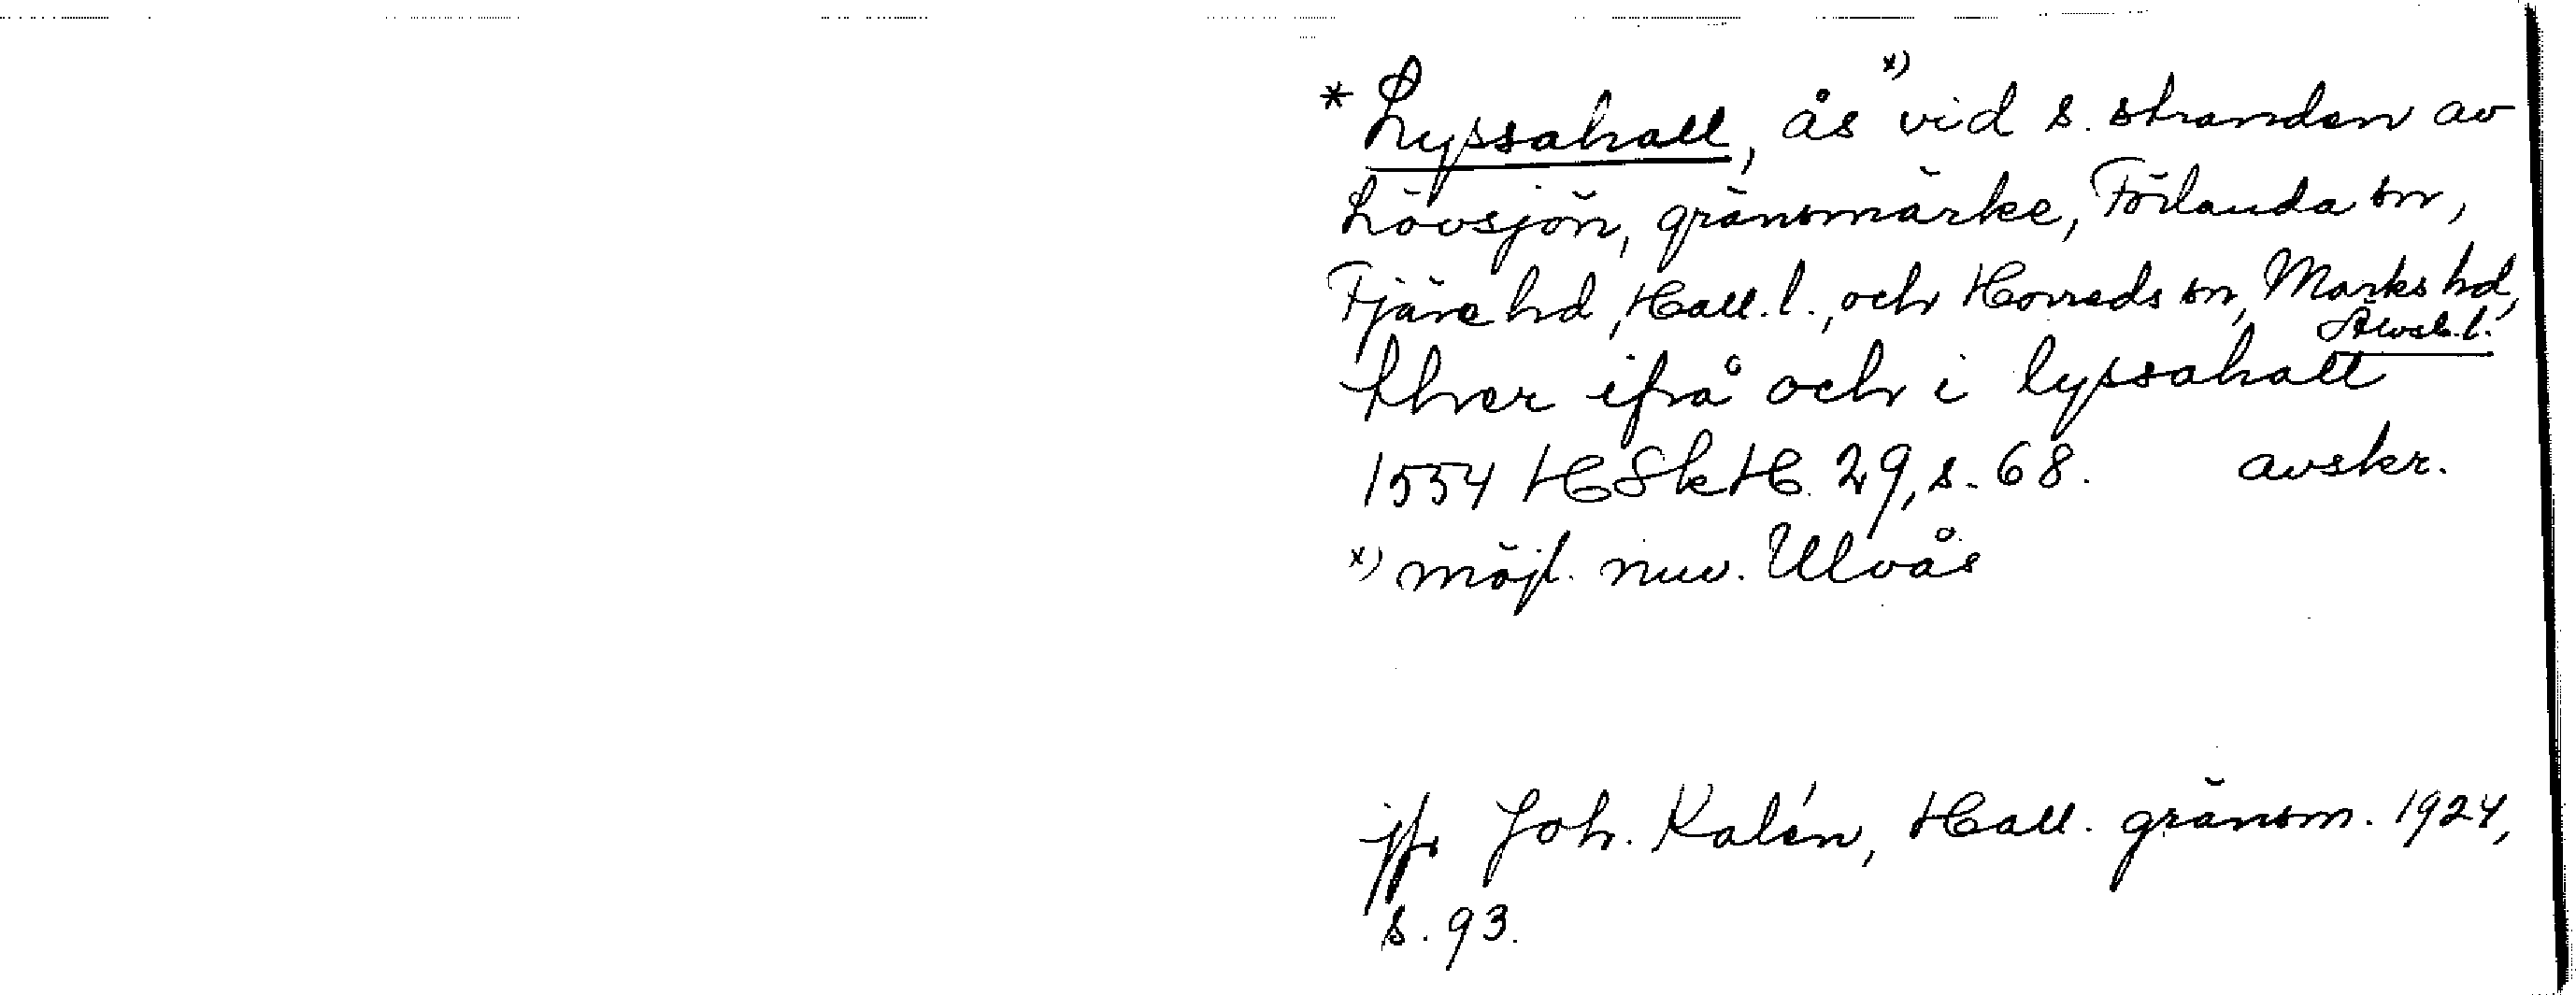 * Lyssahall, ås x) vid s. stranden av
Lövsjön, gränsmärke, Förlanda sn,
Fjäre hd, Hall. l., och Horreds sn, Marks hd,
Älvsb. l.
ther ifrå och i lyssahall
1554 HSkH 29, s. 68. avskr.
x) möjl. nuv. Ulvås
jfr Joh. Kalén, Hall. gränsm. 1924,
s. 93.